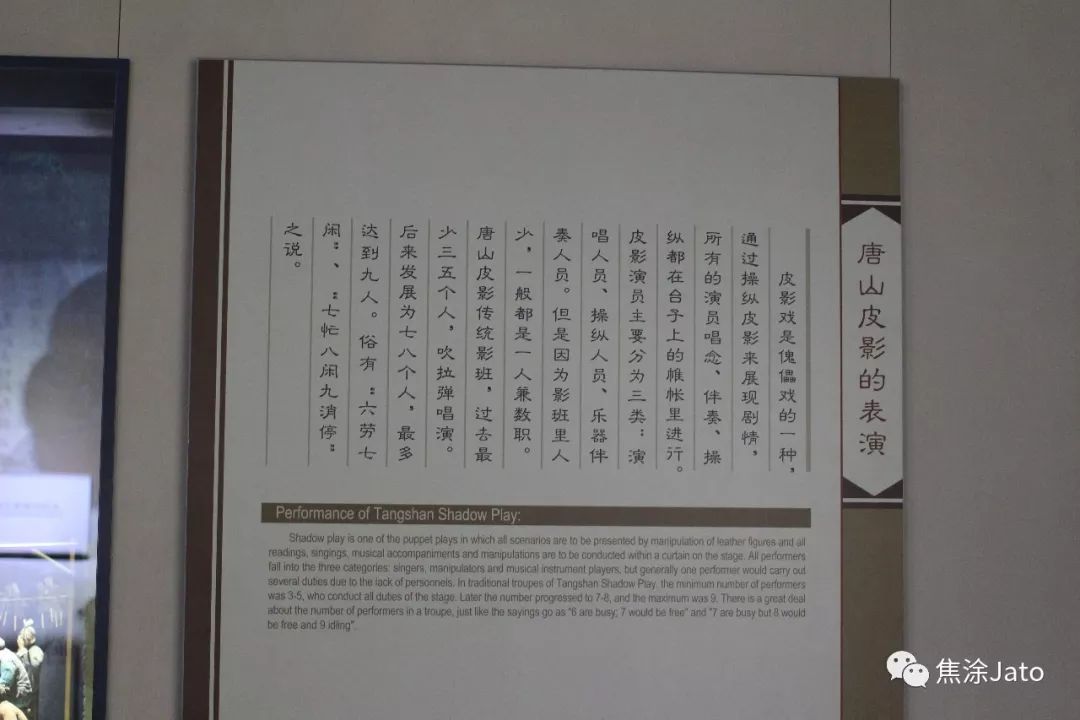 唐山皮影的表演
皮影戏是傀儡戏的一种，
通过操纵皮影来展现剧情，
所有的演员唱念、伴奏、操
纵都在台子上的帷帐里进行。
皮影演员主要分为三类：演
唱人员、操纵人员、乐器伴
奏人员。但是因为影班里人
少，一般都是一人兼数职。
唐山皮影传统影班，过去最
少三五个人，吹拉弹唱演。
后来发展为七八个人，最多
达到九人。俗有“六劳七
闲”、“七忙八闲九消停”
之说。
Performance of Tangshan Shadow Play:
Shadow play is one of the puppet plays in which all scenarios are to be presented by manipulation of leather figures and all
readings, singings, musical accompaniments and manipulations are to be conducted within a curtain on the stage. All performers
fall into the three categories: singers, manipulators and musical instrument players, but generally one performer would carry out
several duties due to the lack of personnels. In traditional troupes of Tangshan Shadow Play, the minimum number of performers
was 3-5, who conduct all duties of the stage. Later the number progressed to 7-8, and the maximum was 9. There is a great deal
about the number of performers in a troupe, just like the sayings go as "6 are busy; 7 would be free" and "7 are busy but 8 would
be free and 9 idling".
焦涂Jato